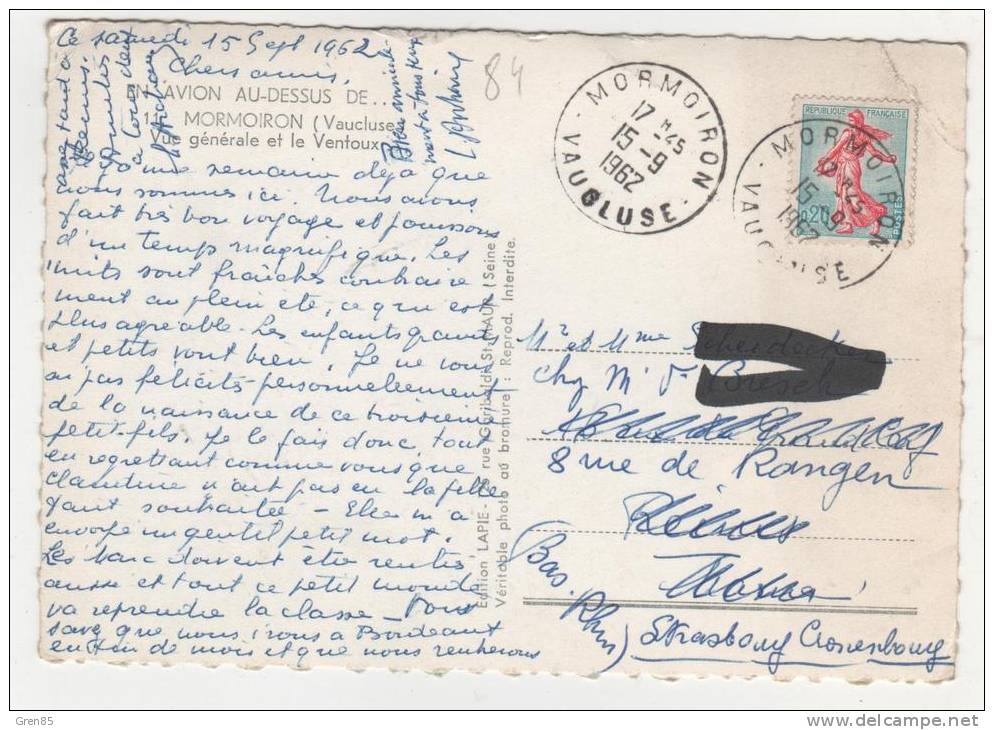 Ce samedi 15 Sept 1962
Chers amis,
EN AVION AU-DESSUS DE...
11 - MORMOIRON (Vaucluse)
Vue générale et le Ventoux
une semaine déjà que
nous sommes ici. Nous avons
fait très bon voyage et jouissons
d'un temps magnifique. Les
nuits sont fraîches contraire
ment au plein été, ce qui est
plus agréable. Les enfants grands
et petits vont bien. Je ne vous
ai pas félicités personnellement
de la naissance de ce troisième
petit-fils. Je le fais donc tout
en regrettant comme vous que
Claudine n'ait pas eu la fille
tant souhaitée - Elle m'a
envoyé un gentil petit mot.
Les Marc doivent être rentrés
aussi et tout ce petit monde
va reprendre la classe - Vous
savez que nous irons à Bordeaux
en fin de mois et que nous rentrerons
Bien amicale-
ment à tous deux
84
Edition LAPIE - rue Garibaldi, St-MAUR (Seine
Véritable photo au bromure : Reprod. Interdite.
MORMOIRON
17 H45
15-9
1962
VAUCLUSE
REPUBLIQUE FRANÇAISE
0,20
POSTES
MORMOIRON
17 H45
15-9
1962
VAUCLUSE
Mr et Mme
chez Mr Dr
8 rue de Rangen
Strasbourg Cronenbourg
(Bas. Rhin)
Gren85
www.delcampe.net